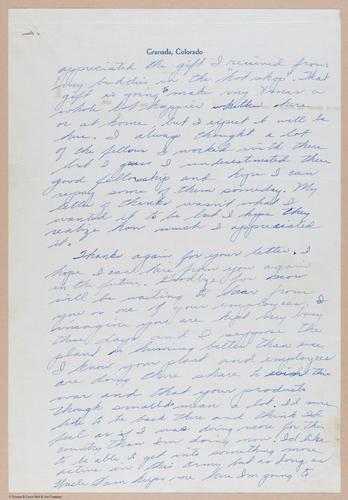 Granada, Colorado
appreciated the gift I received from
my buddies in the "hot shop". That
gift is going to make my Xmas a
whole lot happier whether here
or at home, but I expect it will be
here. I always thought a lot
of the fellows I worked with there
but I guess I underestimated there
good fellowship and hope I can
repay some of them someday. My
letter of thanks wasn't what I
wanted it to be but I hope they
realize how much I appreciated
it.
Thanks again for your letter. I
hope I can hear from you again
in the future. Goodbye for now
will be waiting to hear from
you or one of your employees. I
imagine you are kept very busy
these days and I suppose the
plant is humming better than ever.
I know your plant and employees
are doing there share to win this
war and that your products
though small mean a lot. I'd sure
like to be back there and think I'd
feel as if I was doing more for this
country than I'm doing now. I'd like
to be able to get into something more
active in this army but as long as
Uncle Sam keeps me here I'm going to